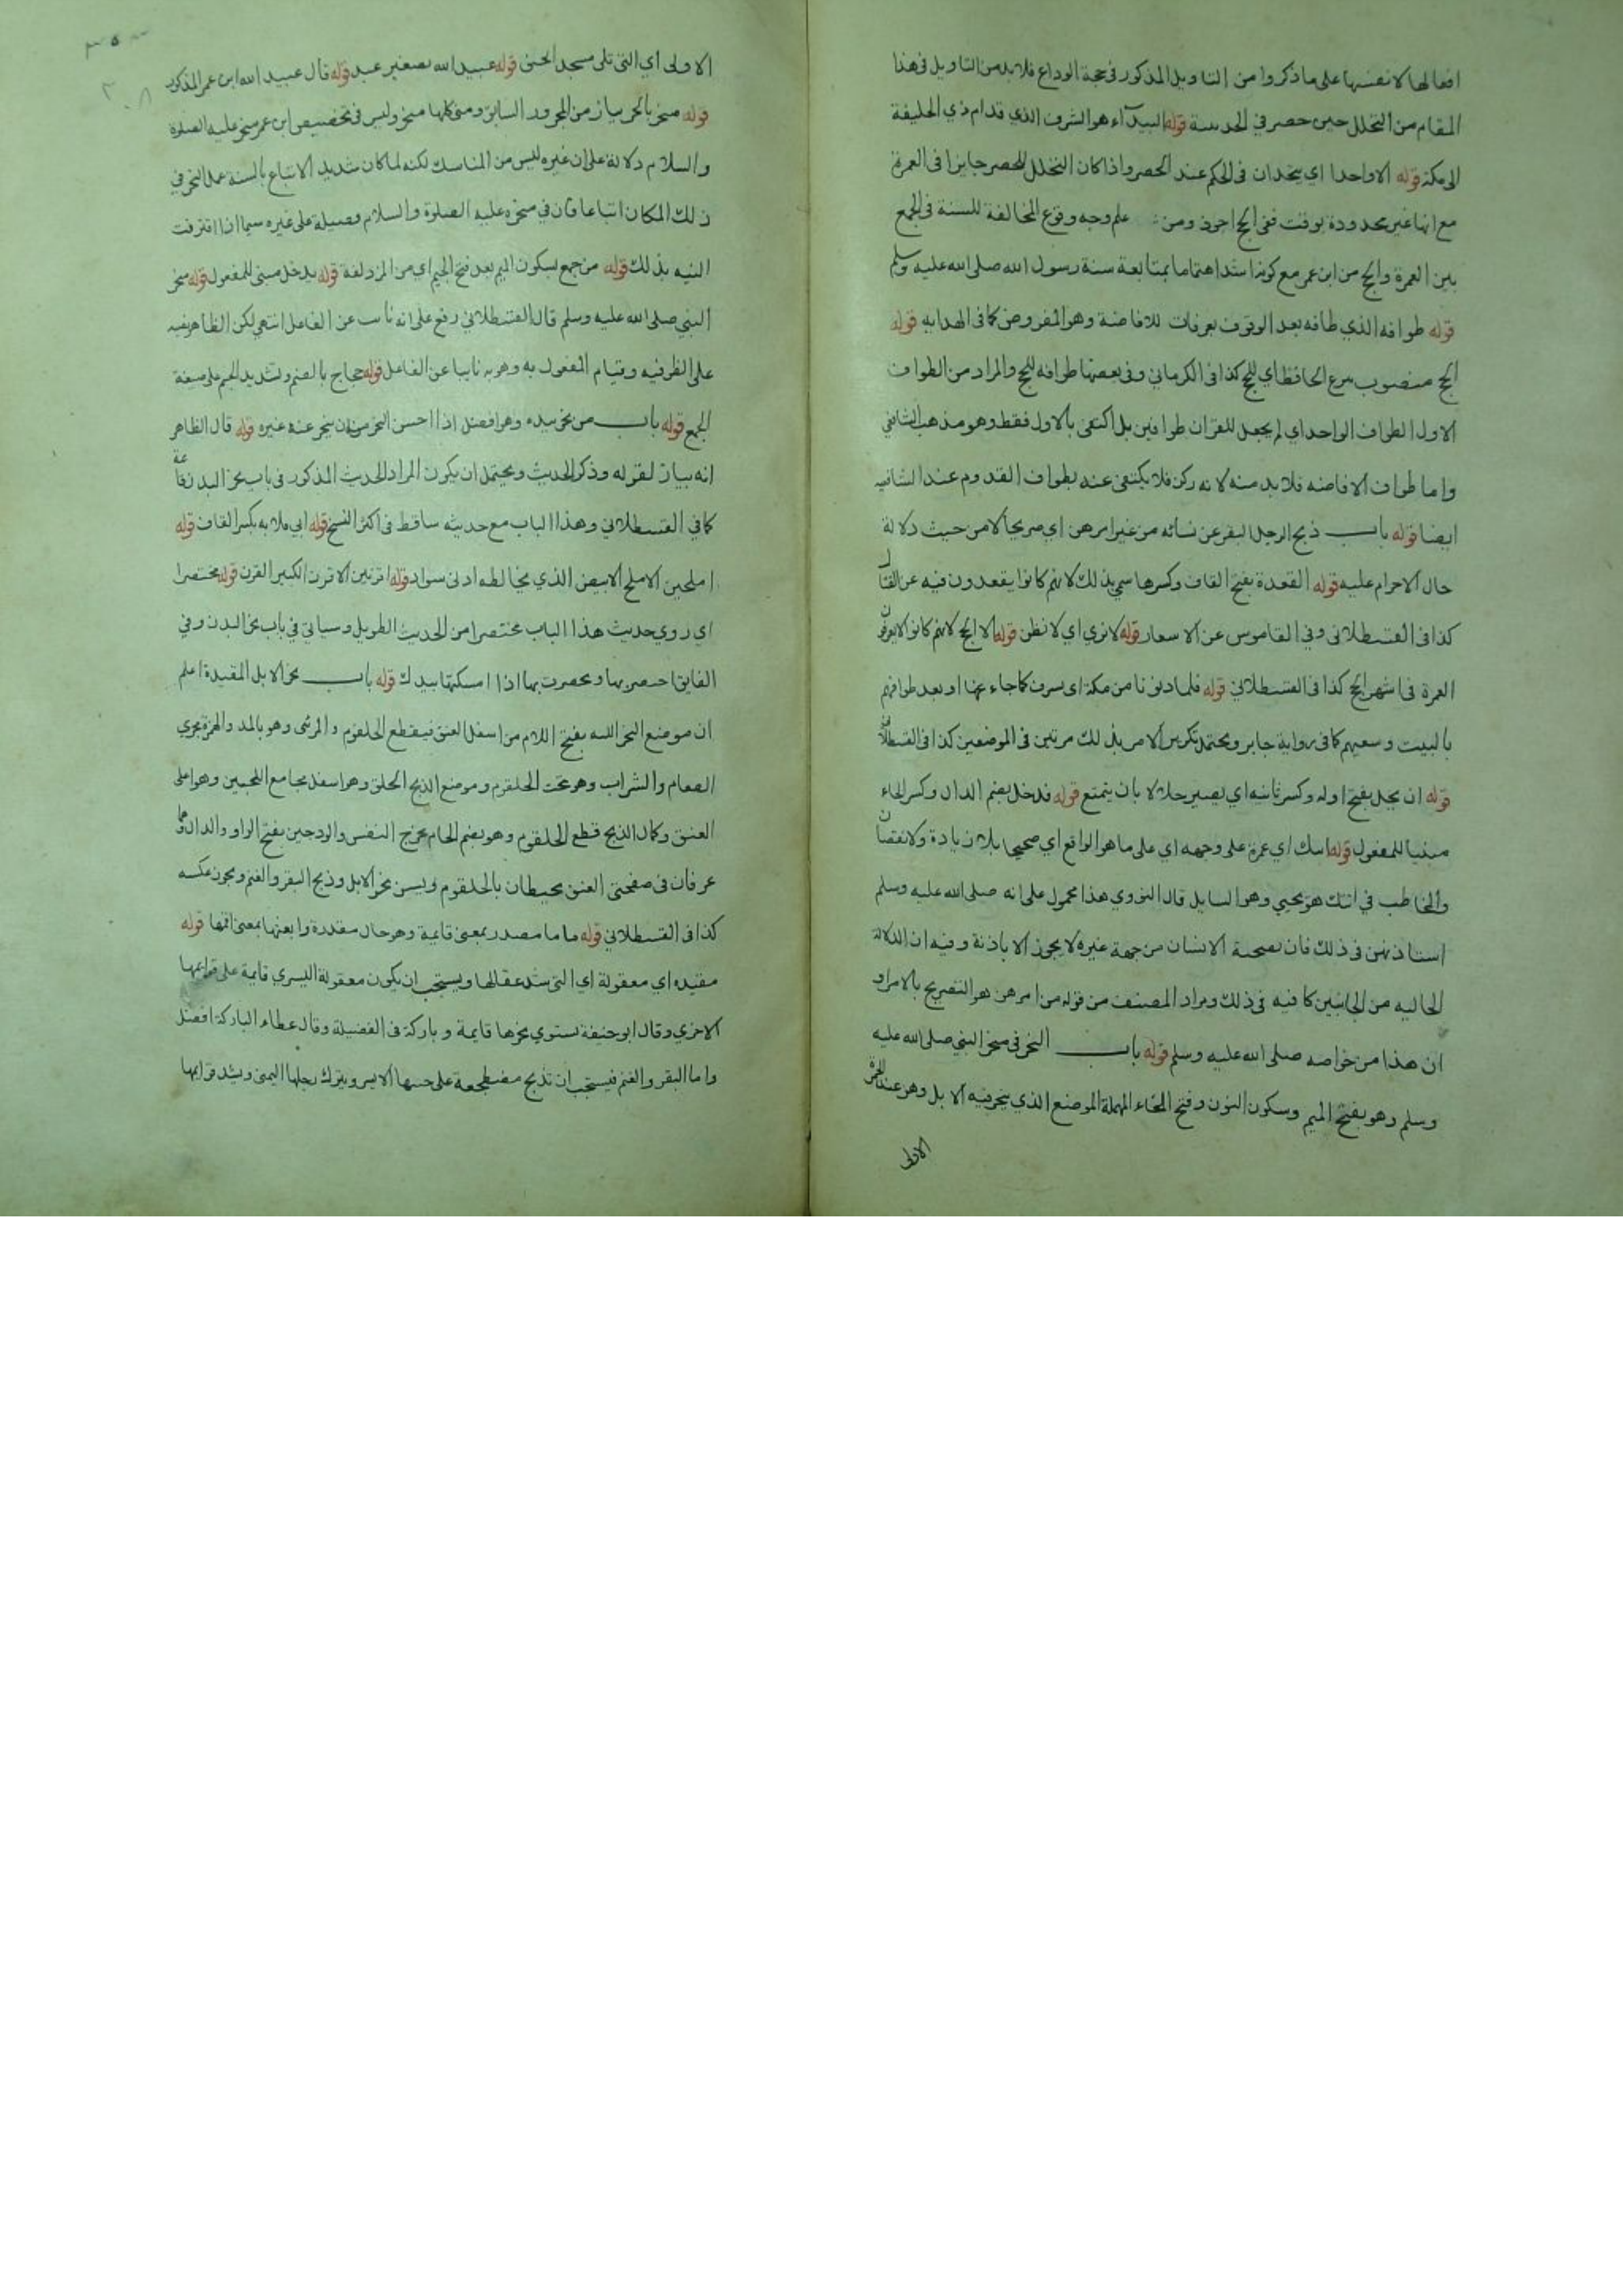 افعالها لا نفسها على ما ذكروا من التاويل المذكور في حجة الوداع فلا بد من التاويل في هذا
المقام من التحلل حين حصر في الحديبية قوله البيدآء هو الشرف الذي قدام ذي الحليفة
الى مكة قوله الا واحدا اي يتحدان في الحكم عند الحصر واذا كان التحلل للحصر جايزا في العمرة
مع انها غير محدودة بوقت ففي الحج اجوز ومن علم وجه وقوع المخالفة للسنة في الجمع
بين العمرة والحج من ابن عمر مع كونه اشد اهتماما بمتابعة سنة رسول الله صلى الله عليه وسلم
قوله طوافه الذي طافه بعد الوقوف بعرفات للافاضة وهو المفروض كما في الهداية قوله
الحج منصوب بنزع الخافظ اي للحج كذا في الكرماني وفي بعضها طوافه للحج والمراد من الطواف
الاول الطواف الواحد اي لم يجعل للقران طوافين بل اكتفى بالاول فقط وهو مذهب الشافعي
واما طواف الافاضه فلا بد منه لانه ركن فلا يكتفى عنه بطواف القدوم عند الشافيه
ايضا قوله باب ذبح الرجل البقر عن نسائه من غير امرهن اي صريحا لا من حيث دلالة
حال الاحرام عليه قوله القعدة بفتح القاف وكسرها سمي بذلك لانهم كانوا يقعدون فيه عن القتال
كذا في القسطلاني وفي القاموس عن الاسعار قوله لا نري اي لا نظن قوله الا الحج لانهم كانوا لا يعرفون
العمرة في اشهر الحج كذا في القسطلاني قوله فلما دنونا من مكة اى بسرف كما جاء عنها او بعد طوافهم
بالبيت وسعيهم كما في رواية جابر ويحتمل تكرير الامر بذلك مرتين في الموضعين كذا في القسطلاني
قوله ان يحل بفتح اوله وكسر ثانيه اي يصير حلالا بان يتمتع قوله فدخل بضم الدال وكسر الخاء
مبنيا للمفعول قوله اتتك اي عمرة على وجهه اي على ما هو الواقع اي صحيحا بلا زيادة ولا نقصان
والمخاطب في اتتك هو يحيي وهو السايل قال النووي هذا محمول على انه صلى الله عليه وسلم
استاذنهن في ذلك فان تضحية الانسان من جهة غيره لا يجوز الا باذنة وفيه ان الدلالة
الحاليه من الجانبين كافيه في ذلك ومراد المصنف من قوله من امرهن هو التصريح بالامر او
ان هذا من خواصه صلى الله عليه وسلم قوله باب النحر في منحر النبي صلى الله عليه
وسلم وهو بفتح الميم وسكون النون وفتح الحاء المهملة الموضع الذي ينحر فيه الابل وهو عند الجمرة
الاولى
الاولى اي التي تلي مسجد الخيف قوله عبيد الله بصغير عبد قوله قال عبيد الله ابن عمر المذكور
قوله منحر بالجر بيان من المجرور السابق ومنى كلها منحر وليس في تخصيص ابن عمر منحر عليه الصلوة
والسلام دلالة على ان غيره ليس من المناسك لكنه لما كان شديد الاتباع بالسنة عمل النحر في
ذلك المكان اتباعا فان في منحره عليه الصلوة والسلام فضيلة على غيره سيما اذا اقترفت
النيه بذلك قوله من جمع بسكون الميم بعد فتح الجيم اي من المزدلفة قوله يدخل مبني للمفعول قوله منحر
النبي صلى الله عليه وسلم قال القسطلاني رفع على انه نائب عن الفاعل انتهى لكن الظاهر نصبه
على الظرفيه وقيام المفعول به وهو به نايبا عن الفاعل قوله حجاج بالضم وتشديد الجيم على صيغة
الجمع قوله باب من نحر بيده وهو افضل اذا احسن النحر من ان ينحر عنه غيره قوله قال الظاهر
انه بيان لقوله وذكر الحديث ويحتمل ان يكون المراد الحديث المذكور في باب نحر البدن قائمة
كما في القسطلاني وهذا الباب مع حديثه ساقط في اكثر النسخ قوله ابي قلابه بكسر القاف قوله
املحين الاملح الابيض الذي يخالطه ادنى سواد قوله اقرنين الاقرن الكبير القرن قوله مختصرا
اي روي حديث هذا الباب مختصرا من الحديث الطويل وسياتي في باب نحر البدن وفي
الفايق اختصر بها وخصرت بها اذا امسكتها بيدك قوله باب نحر الابل المقيدة اعلم
ان موضع النحر اللبه بفتح اللام من اسفل العنق فيقطع الحلقوم والمرئى وهو بالمد والهمزة مجري
الطعام والشراب وهو تحت الحلقوم وموضع الذبح الحلق وهو اسفل مجامع اللحيين وهو اعلى
العنق وكمال الذبح قطع الحلقوم وهو بضم الحاء مخرج النفس والودجين بفتح الواو والدال وهما
عرقان في صفحتي العنق محيطان بالحلقوم ويسن نحر الابل وذبح البقر والغنم ويجوز عكسه
كذا في القسطلاني قوله قياما مصدر بمعنى قايمة وهو حال مقدرة وابعثها بمعنى اقمها قوله
مقيده اي معقولة اي التي شد عقالها ويستحب ان يكون معقولة اليسري قايمة على قوايمها
الاخري وقال ابو حنيفة يستوي نحرها قايمة و باركة في الفضيلة وقال عطاء الباركة افضل
واما البقر والغنم فيستحب ان تذبح مضطجعة على جنبها الايسر ويترك رجلها اليمنى ويشد قوايمها